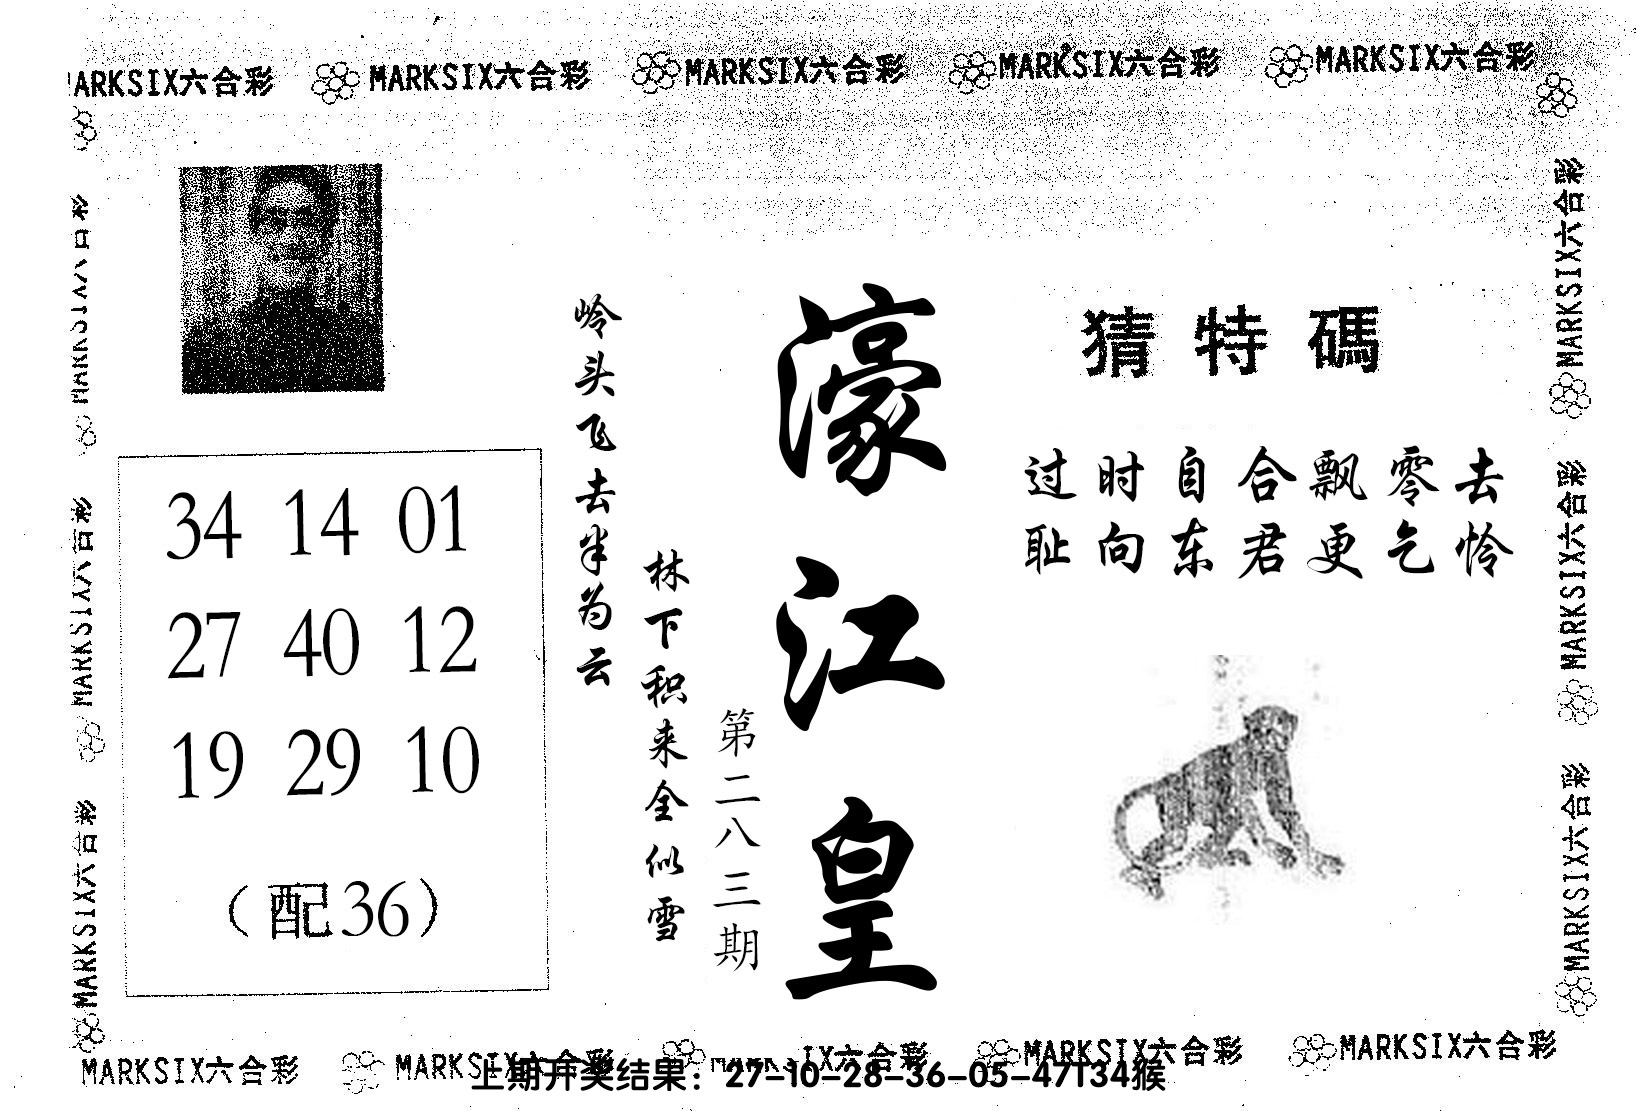 MARKSIX六合彩 MARKSIX六合彩 MARKSIX六合彩 MARKSIX六合彩 MARKSIX六合彩
猜特碼
过时自合飘零去
耻向东君更乞怜
濠江皇
第二八三期
岭头飞去半为云
林下积来全似雪
34 14 01
27 40 12
19 29 10
（配36）
MARKSIX六合彩
MARKSIX六合彩
MARKSIX六合彩
MARKSIX六合彩
MARKSIX六合彩
MARKSIX六合彩
MARKSIX六合彩 MARKSIX六合彩 MARKSIX六合彩 MARKSIX六合彩 MARKSIX六合彩
上期开奖结果：27-10-28-36-05-47T34猴